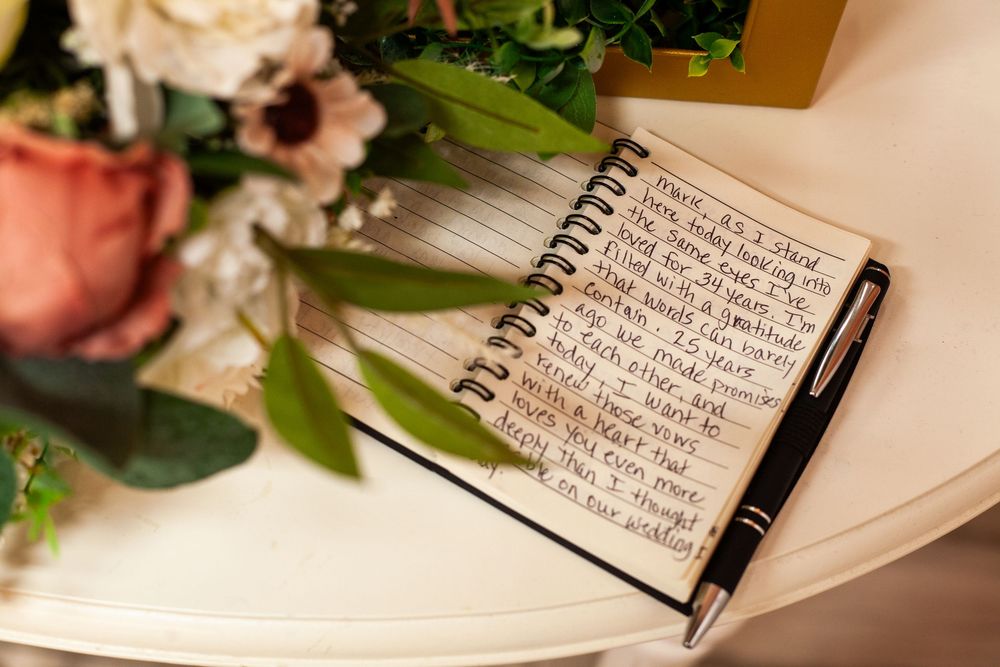 mark, as I stand
here today looking into
the same eyes I've
loved for 34 years. I'm
filled with a gratitude
that words can barely
contain. 25 years
ago we made promises
to each other, and
today, I want to
renew those vows
with a heart that
loves you even more
deeply than I thought
on our wedding